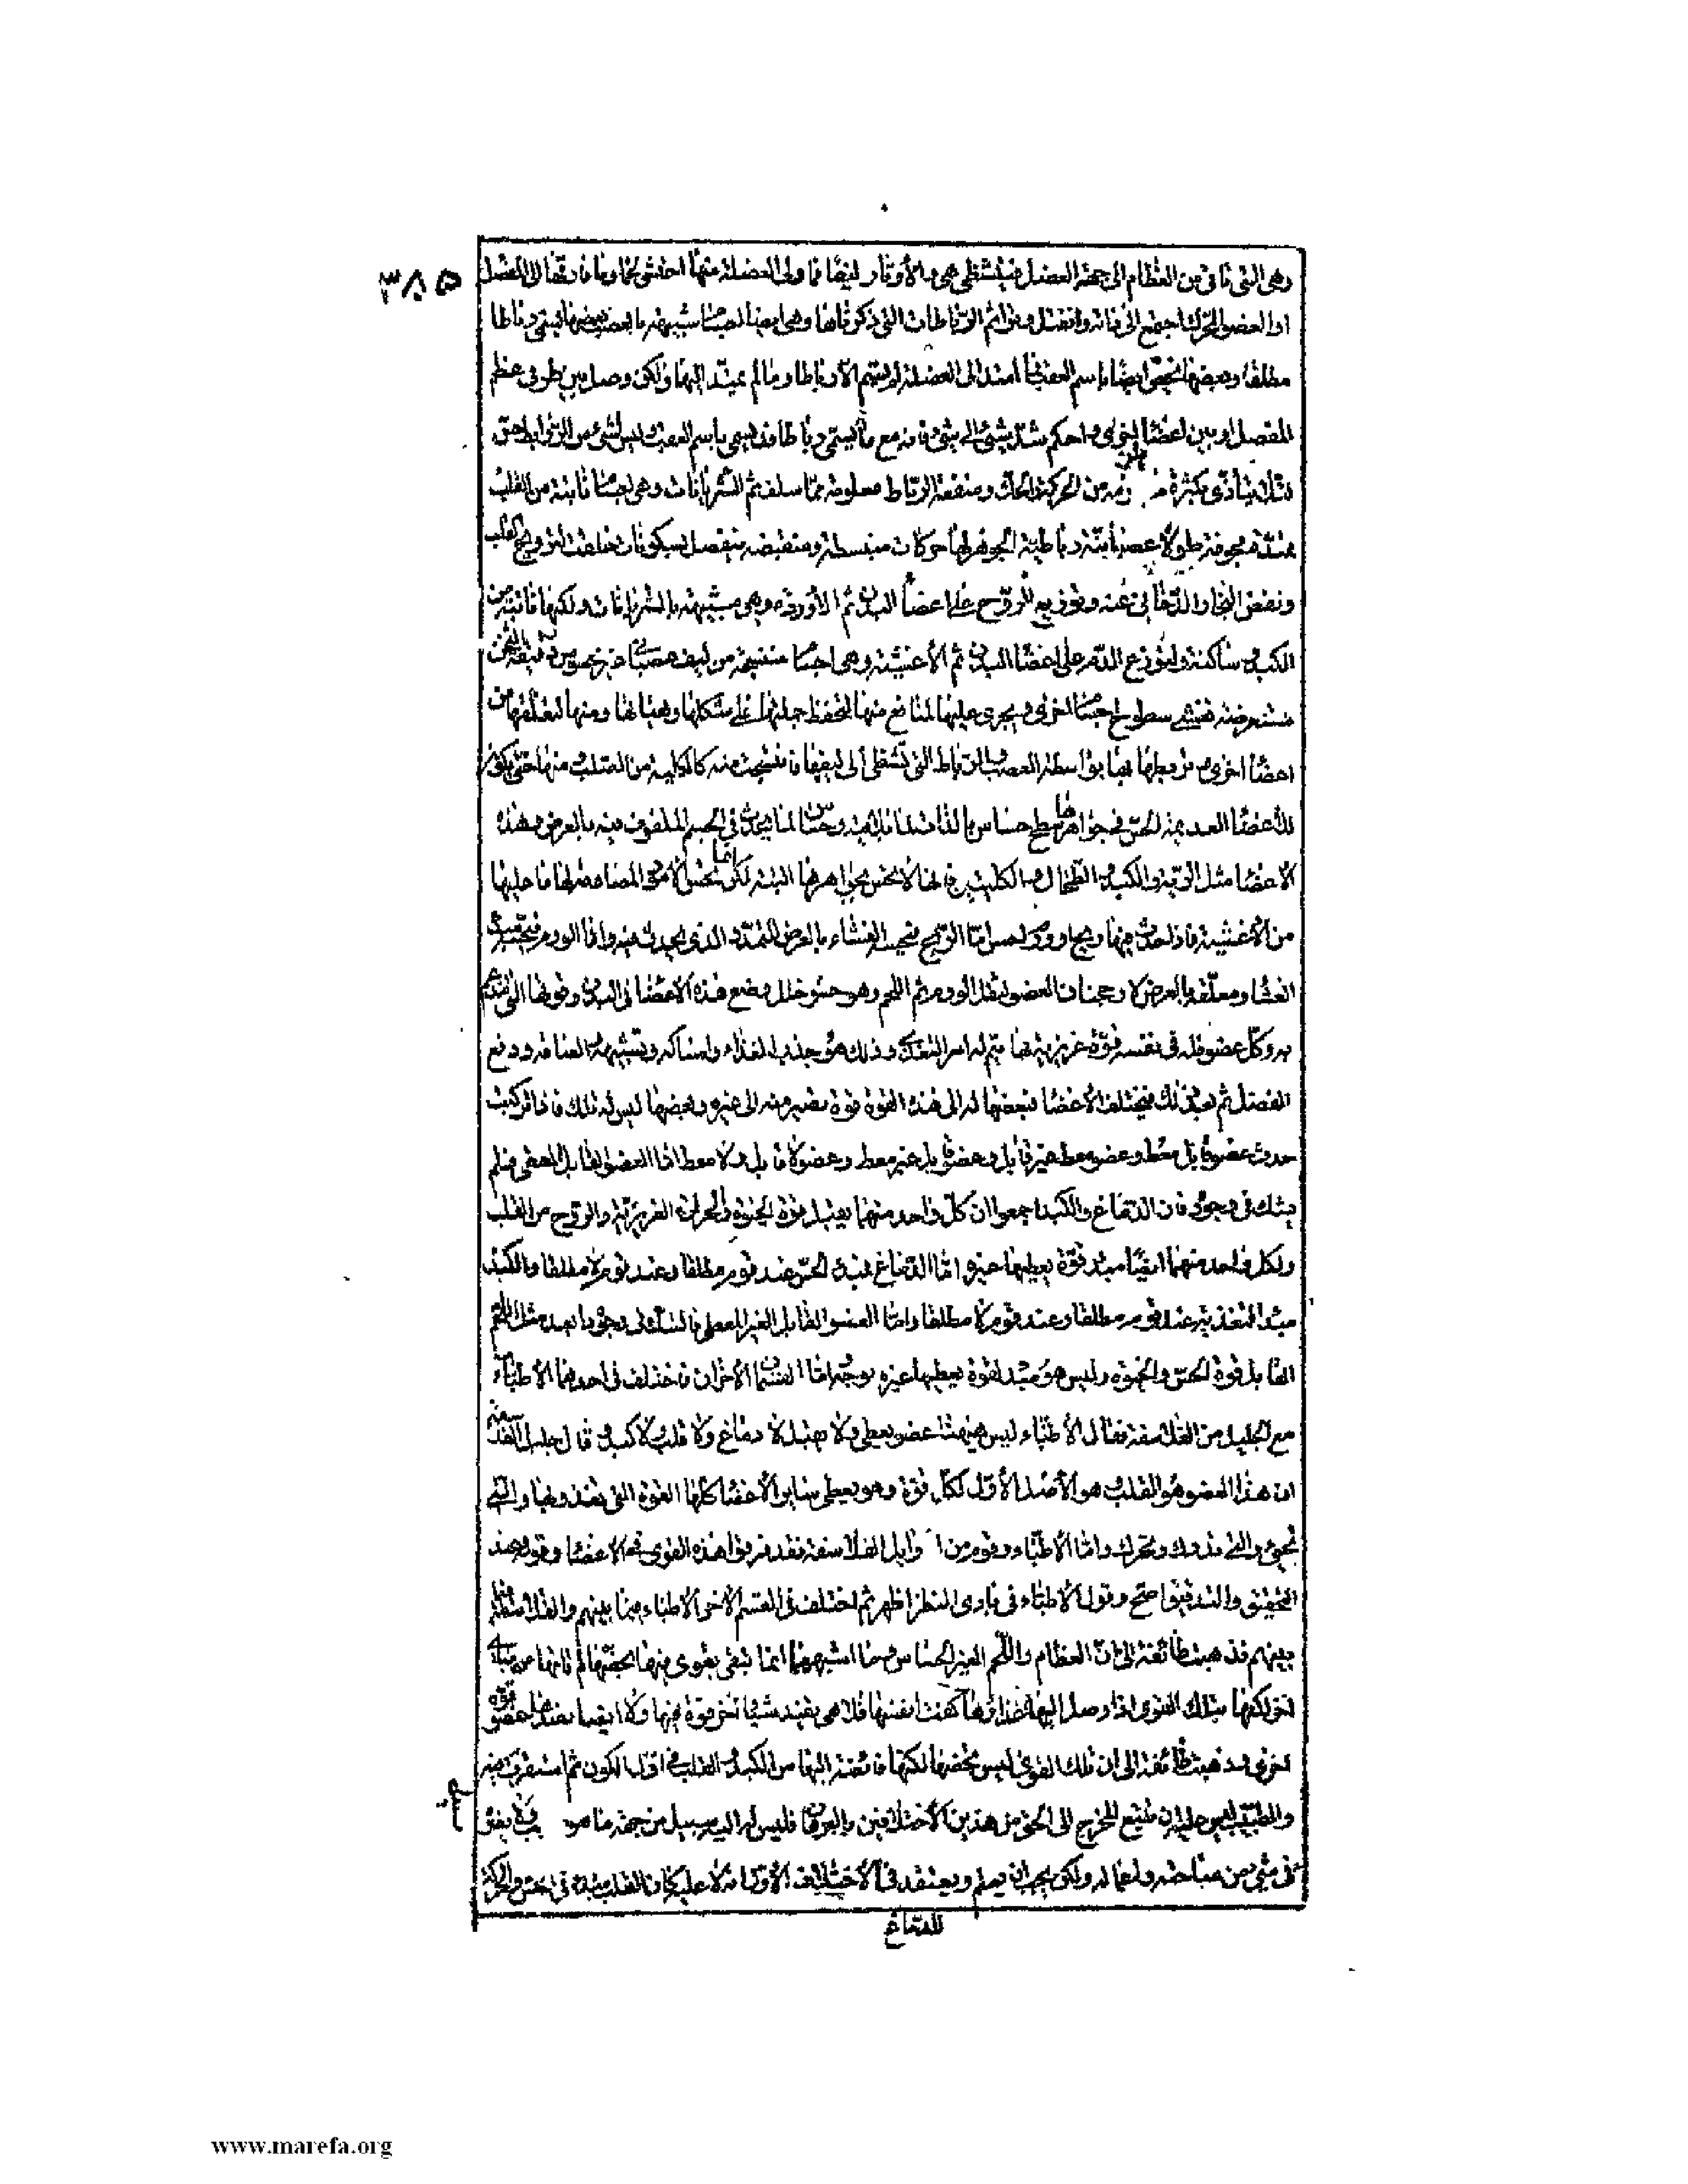 ٣٨٥
وهى التى تاتى من العظام الى جهة العضل فيتشظى هى والأوتار ليفا فما ولى العضلة منها احتشى لحما وما فارقها الى المفصل
او العضو المحرك اجتمع الى ذاته وانفتل وترا ثم الرباطات التى ذكرناها وهى ايضا اجسام شبيهة بالعصب بعضها يسمى رباطا
مطلقا وبعضها يخص ايضا باسم العقب فما امتد الى العضلة لم يسم الا رباطا وما لم يمتد اليها ولكن وصل بين طرفى عظم
المفصل او بين اعضا اخرى واحكم شد شىء الى شىء فانه مع ما يسمى رباطا قد يسمى باسم العقب وليس لشىء من الروابط حس
لئلا يتأذى بكثرة ما يلزمه من الحركة والحك ومنفعة الرباط معلومة مما سلف ثم الشريانات وهى اجسام نابتة من القلب
ممتدة مجوفة طولا عصبانية رباطية الجوهر لها حركات منبسطة ومنقبضة ينفصل بسكونات خلقت لترويح القلب
ونفض البخار الدخانى عنه وتوزيع الروح على اعضا البدن ثم الأوردة وهى شبيهة بالشريانات ولكنها نابتة من
الكبد وساكنة ولتوزع الدم على اعضا البدن ثم الأغشية وهى اجسام منتسجة من ليف عصبانى غير محسوس رقيقة الثخن
مستعرضة تغشى سطوح اجسام اخرى ويجرى عليها لمنافع منها لتحفظ جملتها على شكلها وهيأتها ومنها لتعلقها من
اعضا اخرى وتربطها بها بواسطة العصب والرباط التى تشظى الى ليفها فانتسجت منه كالكلية من الصلب ومنها حتى يكون
للأعضا العديمة الحس فى جواهرها سطح حساس بالذات لما يلاقيه وحساس لما يحدث فى الجسم الملفوف فيه بالعرض وهذه
الاعضا مثل الرية والكبد والطحال والكليتين فانها لا تحس بجواهرها البتة لكن انما تحس الامور المصادمة لها بما عليها
من الأغشية فاذا حدث فيها ريح او ورم احس اما الريح فيحسه الغشاء بالعرض للتمدد الذى يحدث فيه واما الورم فيحسه مبدأ
الغشا ومعلقه بالعرض لارجحنان العضو لثقل الورم ثم اللحم وهو حشو خلل وضع هذه الاعضا فى البدن وقوتها التى تندعم
به وكل عضو فله فى نفسه قوة غريزية بها يتم له امر التغذى وذلك هو جذب الغذاء وامساكه وتشبيهه والصاقه ودفع
الفضل ثم بعد ذلك فيختلف الأعضا فبعضها له الى هذه القوة قوة تصير منه الى غيره وبعضها ليس له ذلك فاذا تركبت
حدث عضو قابل معط وعضو معط غير قابل وعضو قابل غير معط وعضو لا قابل ولا معط اما العضو القابل المعطى فلم
يشك فى وجوده فان الدماغ والكبد اجمعوا ان كل واحد منهما يقبل قوة الحيوة والحرارة الغريزية والروح من القلب
ولكل واحد منهما ايضا مبدء قوة يعطيها غيره اما الدماغ فمبدء الحس عند قوم مطلقا وعند قوم لا مطلقا والكبد
مبدء التغذية عند قوم مطلقا وعند قوم لا مطلقا واما العضو القابل الغير المعطى فالشك فى وجوده ابعد مثل اللحم
القابل قوة الحس والحيوة وليس هو مبدء لقوة يعطيها غيره بوجه اما القسمان الأخران فاختلف فى احدهما الأطباء
مع الجليل من الفلاسفة فقال الأطباء ليس ههنا عضو يعطى ولا يقبل لا دماغ ولا قلب ولا كبد وقال جليل الفلاسفة
ان هذا العضو هو القلب وهو الأصل الأول لكل قوة وهو يعطى ساير الأعضا كلها القوة التى تغذو بها والتى
تحيى والتى تدرك وتحرك واما الأطباء وقوم من اوايل الفلاسفة فقد فرقوا هذه القوى فى الاعضا وقوله عند
التحقيق والتدقيق اصح وقول الأطباء فى بادى النظر اظهر ثم اختلف فى القسم الاخر الاطباء فيما بينهم والفلاسفة
بينهم فذهبت طائفة الى ان العظام واللحم الغير الحساس وما اشبههما انما تبقى بقوى فيها تخصها لم تاتها من مبادى
اخر لكنها بتلك القوى اذا وصل اليها غذاؤها كفت انفسها فلا هى يفيد شيئا اخر قوة فيها ولا ايضا يفيدها عضو قوة
اخرى وذهبت طائفة الى ان تلك القوى ليس تخصها لكنها فائضة اليها من الكبد والقلب فى اول الكون ثم استقرت فيه
والطبيب ليس عليه ان يتتبع المخرج الى الحق من هذين الأختلافين بالبرهان فليس له اليه سبيل من جهة ما هو ولا يعوقه
فى شىء من مباحثه واعماله ولكن يجب ان يعلم ويعتقد فى الأختلاف الأول انه لا عليه كان القلب مبدء فى الحس والحركة
للدماغ
www.marefa.org